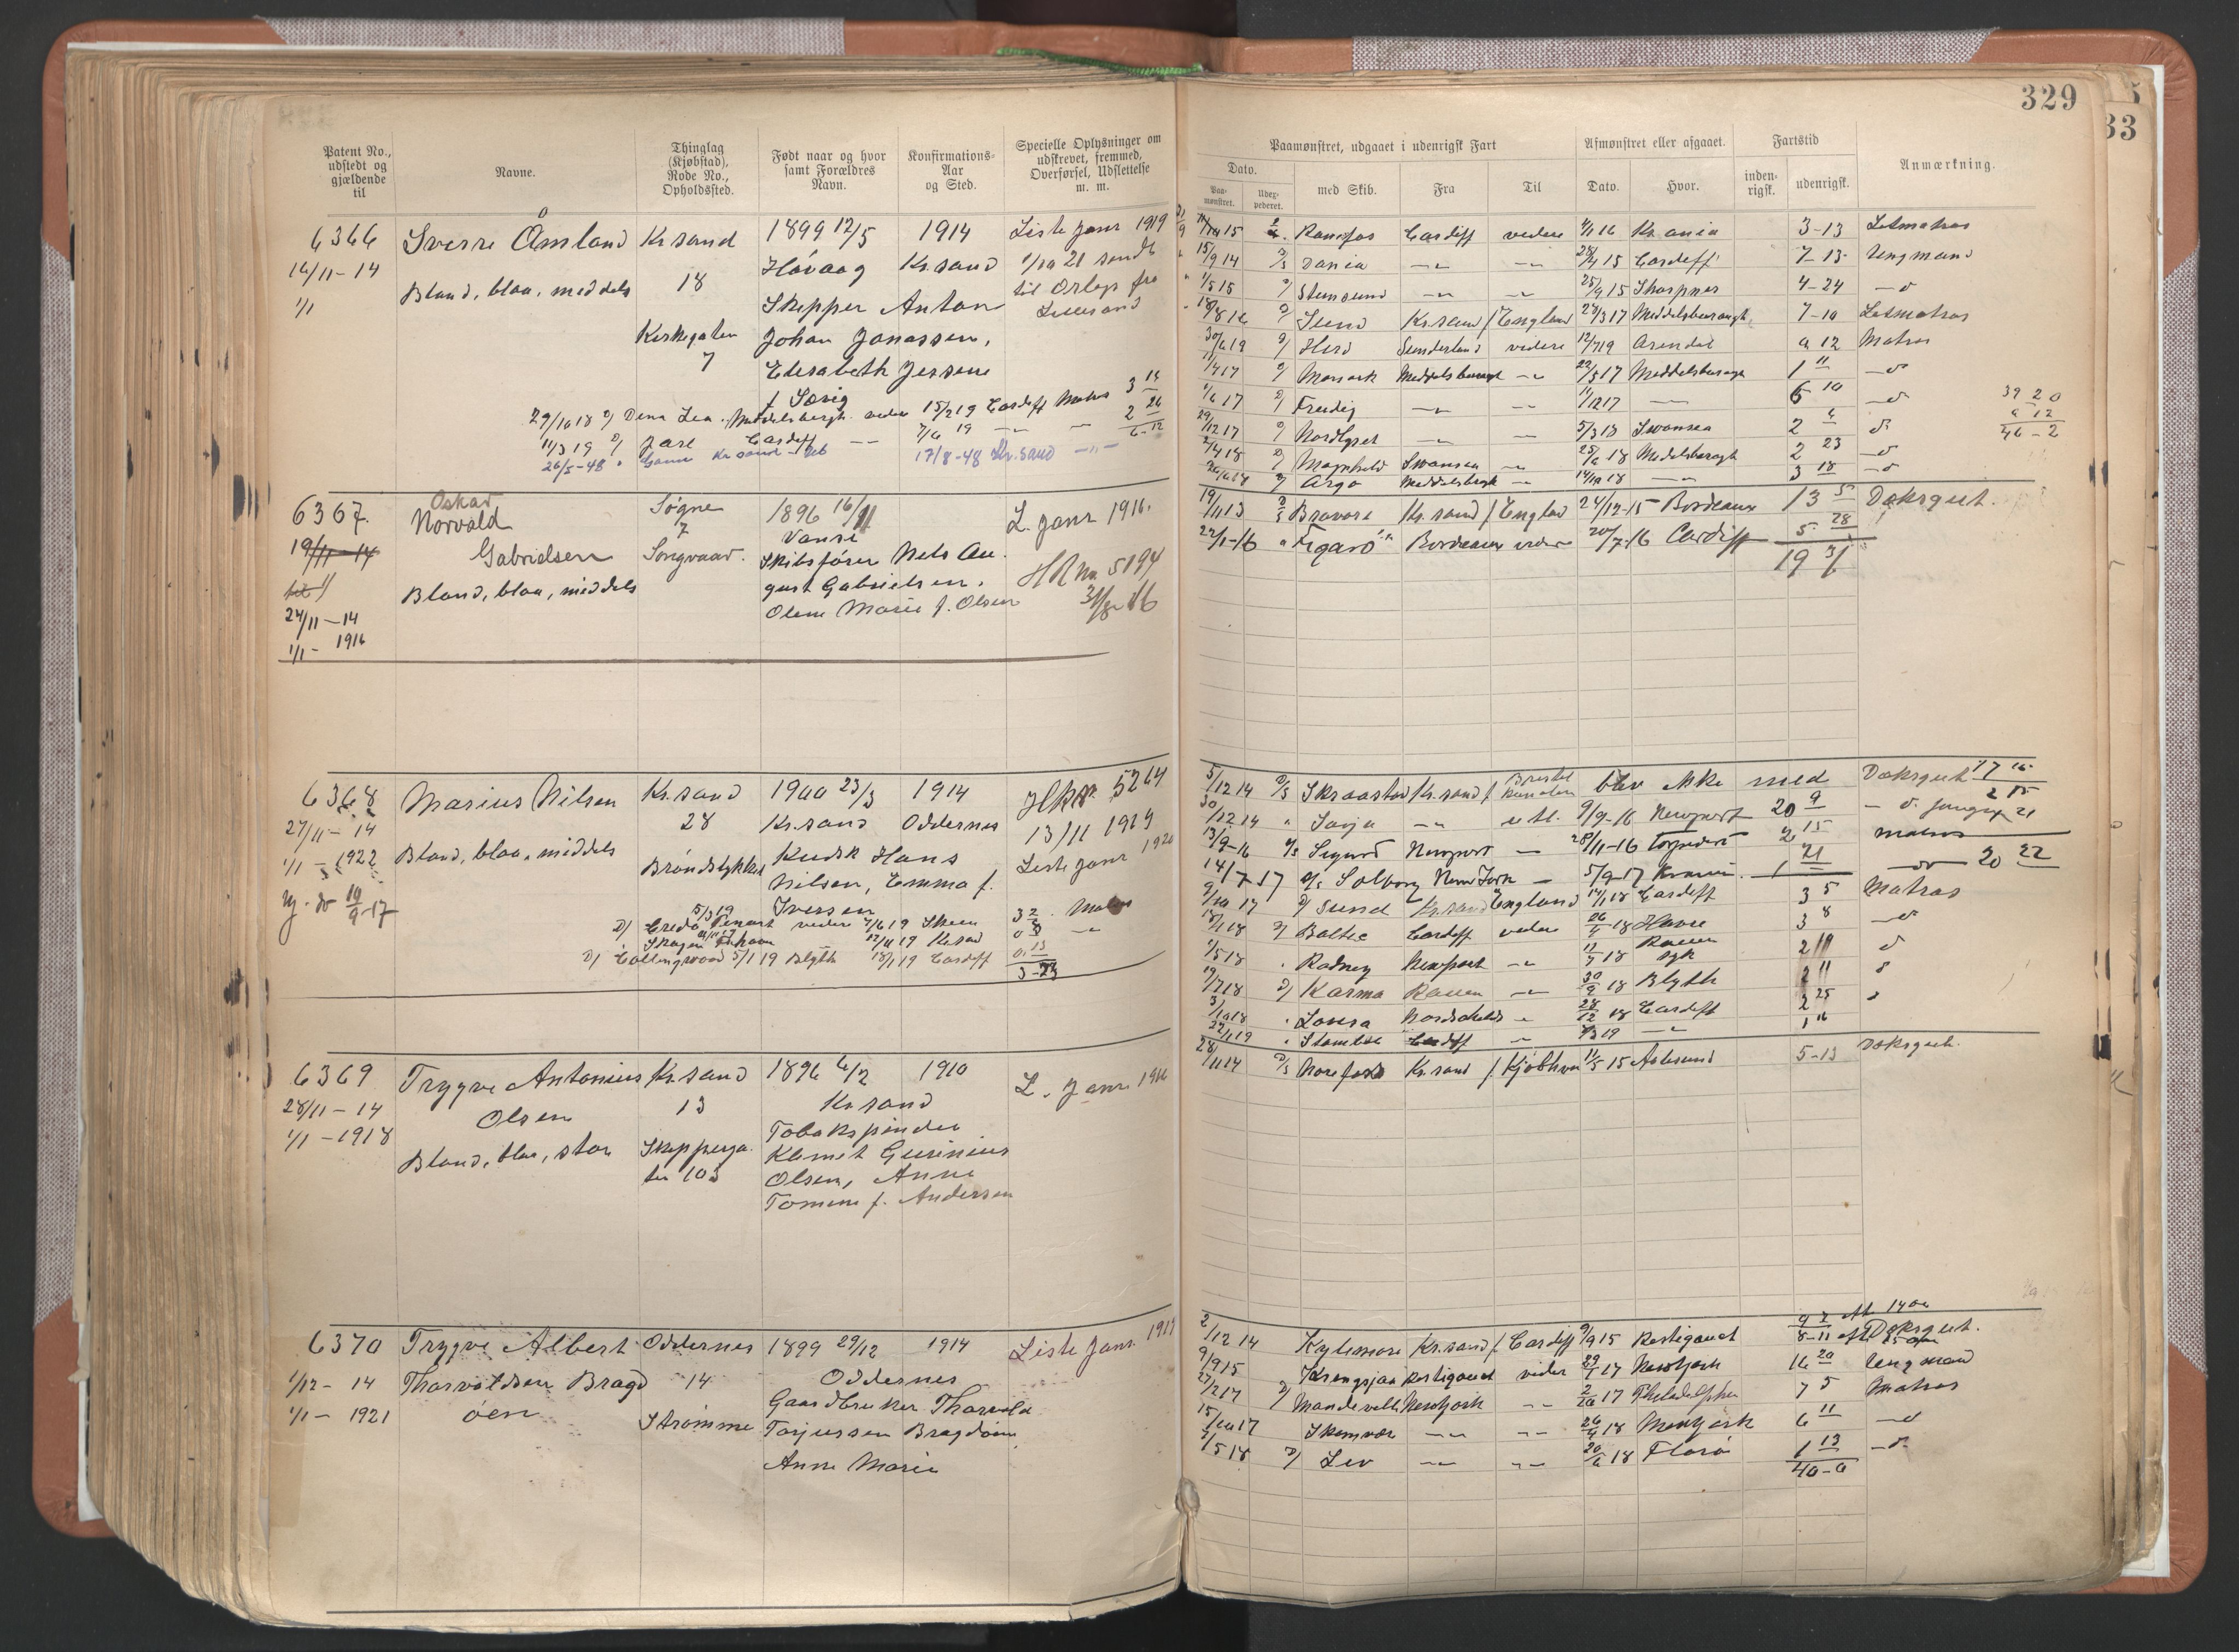 329
33
Patent No., udstedt og gjældende til
Navne.
Thinglag (Kjøbstad), Rode No., Opholdssted.
Født naar og hvor samt Forældres Navn.
Konfirmations-Aar og Sted.
Specielle Oplysninger om udskrevet, fremmed, Overførsel, Udslettelse m. m.
Paamønstret, udgaaet i udenrigsk Fart
Afmønstret eller afgaaet.
Fartstid
Anmærkning.
Dato.
Paamønstret.
Udexpederet.
med Skib.
Fra
Til
Dato.
Hvor.
indenrigsk.
udenrigsk.
6366 Sverre Åmland Kr.sand 1899 12/5 1914 Liste Janr 1919
14/11-14 Høvaag Kr.sand
1/1 Blond, blaa, middels 18 Skipper Anton til Orlogs fra
Kirkegaten Johan Jonassen, Lillesand
7 Elisabeth Jessine
29/10 18 Dena Lea Middelsbergh. videre 15/2 19 Cardiff Matros 3 14
11/3 19 Jarl Cardiff 7/6 19 2 26
26/5-48 Kr.sand 17/8-48 Kr.sand 6-12
Ranefos Cardiff videre 4/1 16 Kr.ania 3-13 Letmatros
15/9 14 Dania 28/4 15 Cardiff 7-13 Ungmand
1/5 15 Stensund 25/9 15 Sharpnes 4-24
Sund Kr.sand / England 28/3 17 Middelsbourough 7-10 Letmatros
30/6 19 Herd Sunderland videre 12/7 19 Arendal 0 12 Matros
Middelsbourgh 22/5 17 Middelsbourgh 1 11
1/6 17 Freidig 11/12 17 6 10 39 20
29/12 17 Nordlyset 5/3 18 Swansea 2 6 0 12
2/4 18 Magnhild Swansea 25/6 18 Middelsbourgh 2 23 40-2
Argo Middelsbrgh 14/10 18 3 18
6367. Oskar Søgne 1896 16/11 L. Janr 1916.
Norvald 7 Vanse
19/11-14 Gabrielsen Songvaar. Skibsfører Nels Au-
Blond, blaa, middels gust Gabrielsen. HR No 5194
24/11-14 Olene Marie f. Olsen 31/8-16
1/1- 1916
19/11 13 D/S Bravore Kr.sand / England 24/12-15 Bordeaux 13 5 Dæksgut.
22/1-16 " "Figaro" Bordeaux videre 20/7-16 Cardiff 5 28
19 3
6368 Marius Nilsen Kr.sand 1900 23/3 1914 5264
27/11-14 28 Kr.sand Oddernes 13/11 1919
1/1-1922 Blond, blaa, middels Kudsk Hans Liste Janr 1920
Nilsen, Emma f.
Iversen
Credo 5/3 19 videre 7/6 19 Skien 3 2 Matros
Skagen 12/11 19 Kr.sand
Collingwood 5/1 19 Blyth 18/1 19 Cardiff 0 13
3-23
5/12 14 D/S Skraastad Kr.sand / Bristol kanalen blev ikke med Dæksgut
30/12 14 " Sonja 9/9-16 Newport 20 9
13/9-16 Sigurd Newport 28/11-16 Torpedert 2 15 Matros
14/7-17 Solborg New York 5/9-17 1 21 20 22
9/10 17 Sund Kr.sand England 14/1 18 Cardiff 3 5 Matros
18/1 18 Baltic Cardiff videre 26/4 18 Havre 3 8
1/5 18 Rodney Newport 11/7 18 Rouen syk
19/7 18 Karma Rouen 30/9 18 Blyth 2 11
3/10 18 Lovisa 28/12 18 Cardiff 2 25
22/1 19 Cardiff
6369 Trygve Antonius Kr.sand 1896 6/2 1910 L. Janr 1916
28/11-14 Olsen 13 Kr.sand
1/1-1918 Tobakspinder
Blond, blaa, stor Skipperga- Klemet Gurinius
ten 103 Olsen, Anne
Tomine f. Andersen
28/11 14 D/S Norefoss Kr.sand / Kjøbhvn 11/5 15 Aalesund 5-13 Dæksgut.
6370 Trygve Albert Oddernes 1899 29/12 1914 Liste Janr 1919
1/12-14 Thorvaldsen Bragd- 14 Oddernes
1/1- 1921 øen Strømme Gaardbruker Thorvald
Torjussen Bragdøen
Anne Marie
2/12 14 Kylemore Kr.sand / Cardiff 9/9 15 Restigouch 8-11 Dæksgut.
9/9 15 Krengsjaa Restigouch videre 29/1 17 Newyork 16 20 Ungmand
27/2 17 Mandeville Newyork 2/10 17 Philadelphia 7 5 Matros
15/10 17 Skomvær 26/4 18 Newyork 6 11
1/5 18 Lev 20/6 18 Florø 1 13
40-0